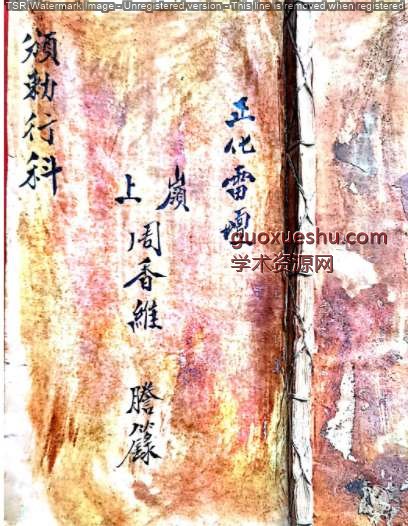 TSR Watermark Image - Unregistered version - This line is removed when registered
正化雷壇
嶺上
周香維 謄籙
頒勅行科
guoxueshu.com
学术资源网